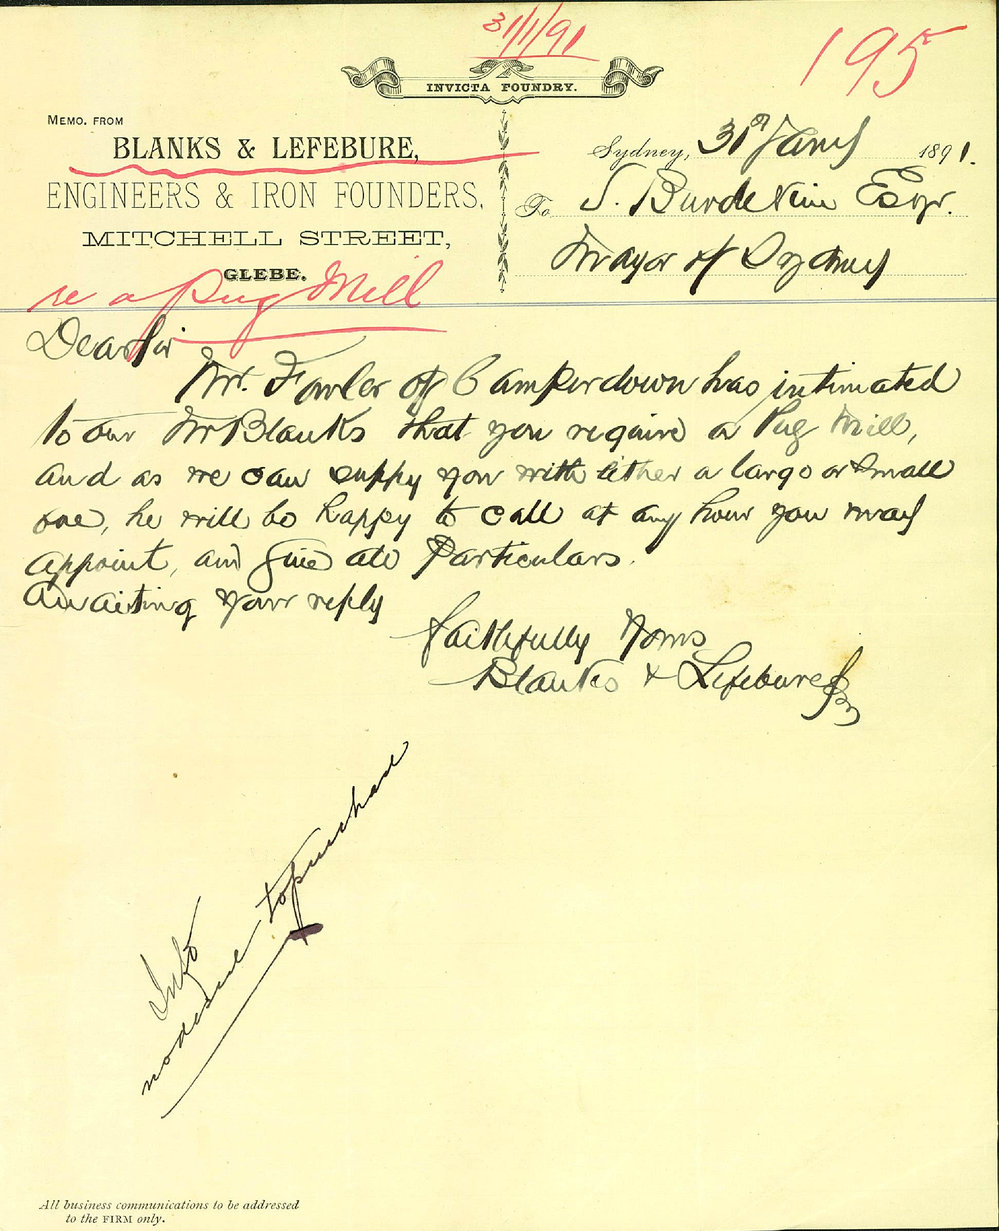 31/1/91
195
INVICTA FOUNDRY.
MEMO. FROM
BLANKS & LEFEBURE,
ENGINEERS & IRON FOUNDERS,
MITCHELL STREET,
GLEBE.
re a Pug Mill
Sydney, 31st Jany 1891.
To S. Burdekin Esqr.
Mayor of Sydney
Dear Sir
Mr. Fowler of Camperdown has intimated
to our Mr Blanks that you require a Pug Mill,
and as we can supply you with either a large or small
one, he will be happy to call at any hour you may
appoint, and give all Particulars.
Awaiting your reply
Faithfully Yours
Blanks & Lefebure
Info
no desire to purchase
All business communications to be addressed
to the FIRM only.